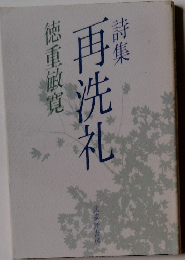 詩集
再洗礼
徳重敏寛